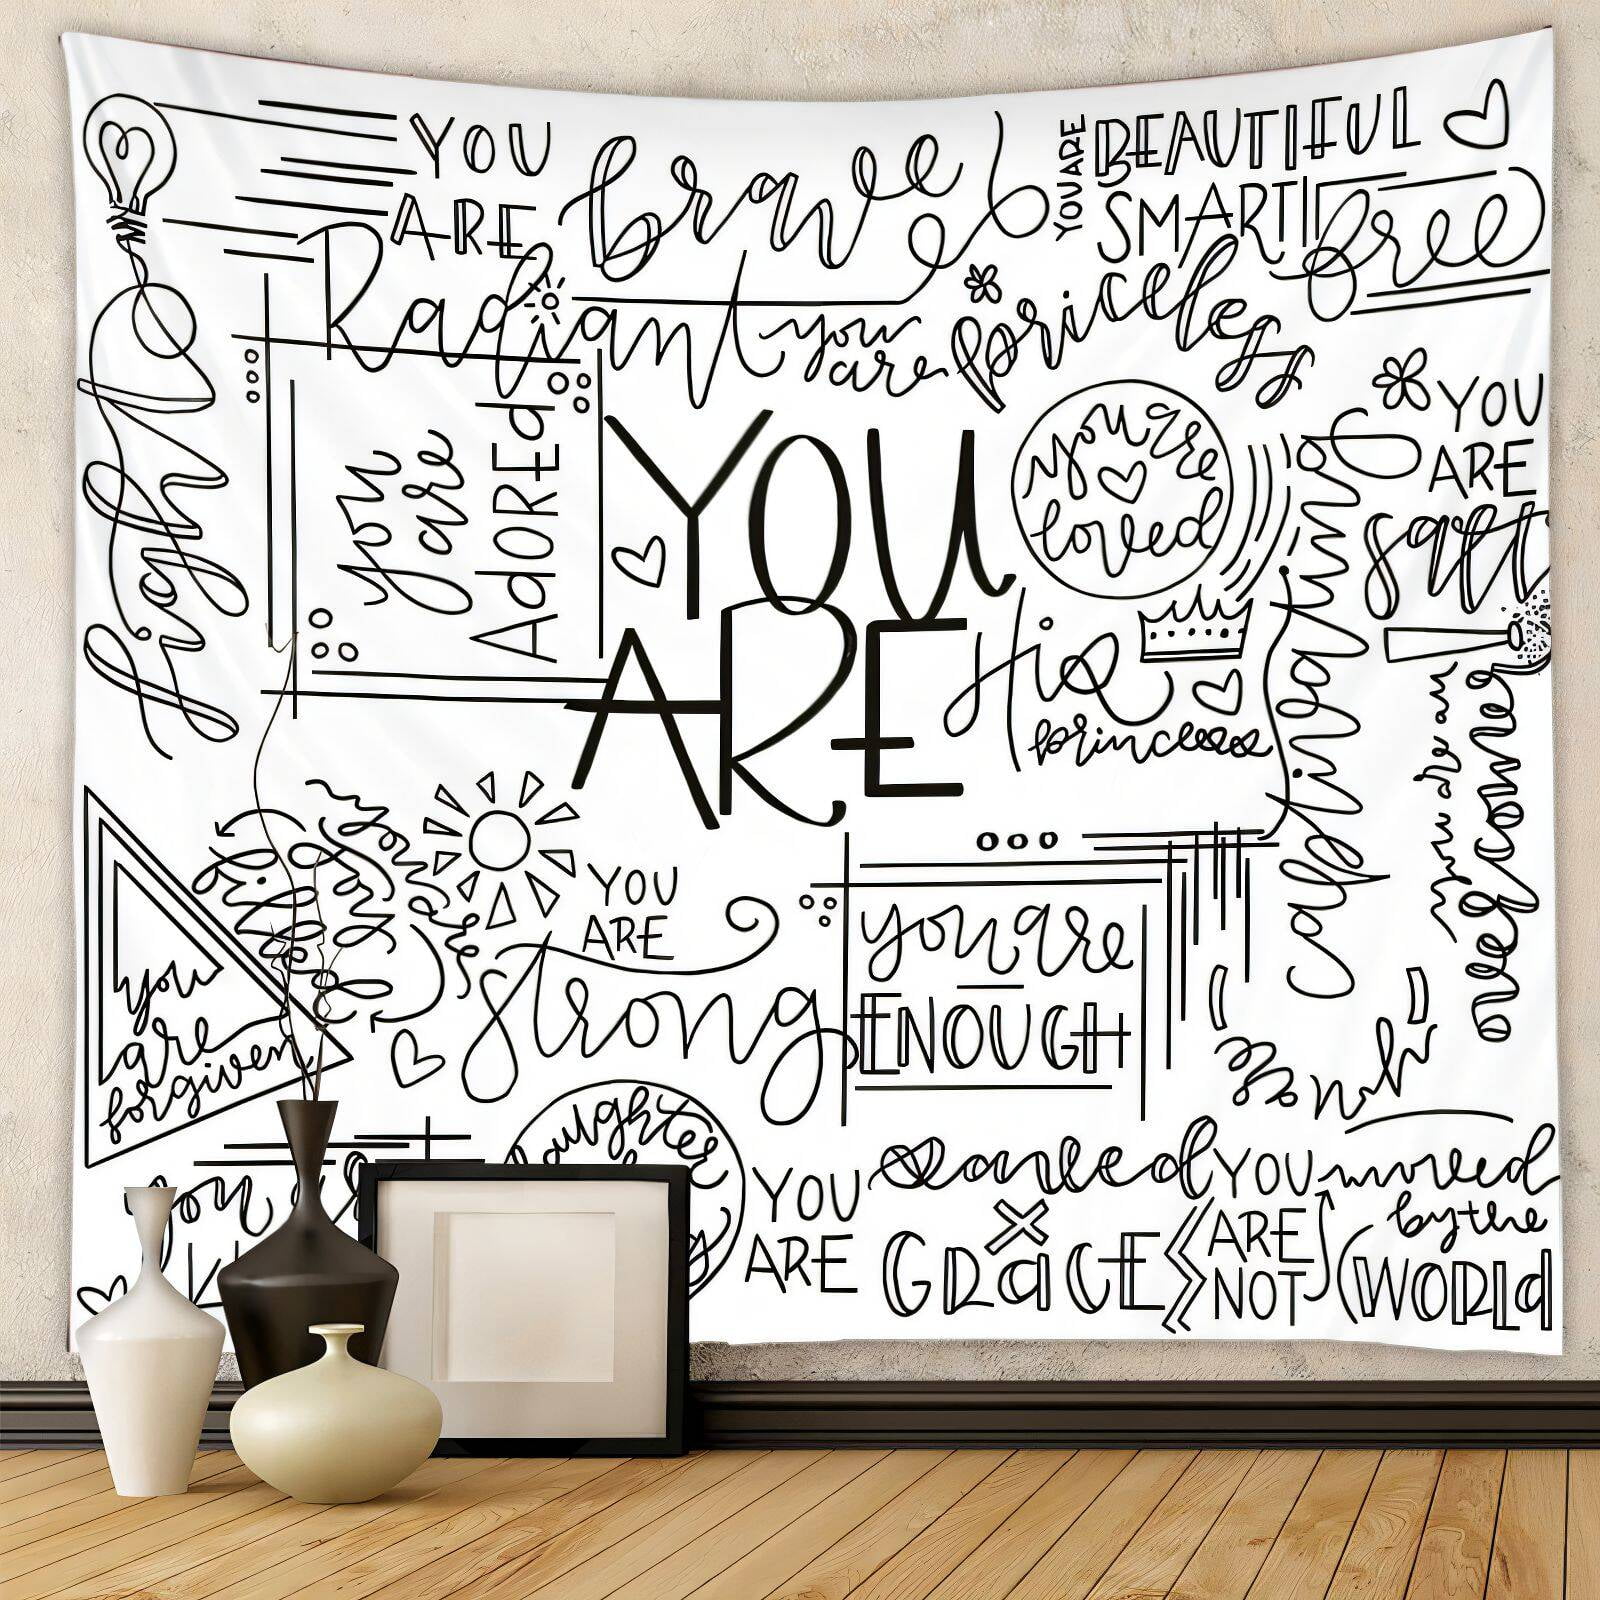 YOU
ARE
brave
YOU ARE
BEAUTIFUL
SMART
free
Radiant
you
are
priceless
light
you
are
ADORED
YOU
ARE
you are
loved
His
princess
captivating
YOU
ARE
salt
you are an
overcomer
you are
YOU
ARE
strong
you are
ENOUGH
you
are
forgiven
daughter
YOU
ARE
saved
x
GRACE
YOU
ARE
NOT
moved
by the
WORLd